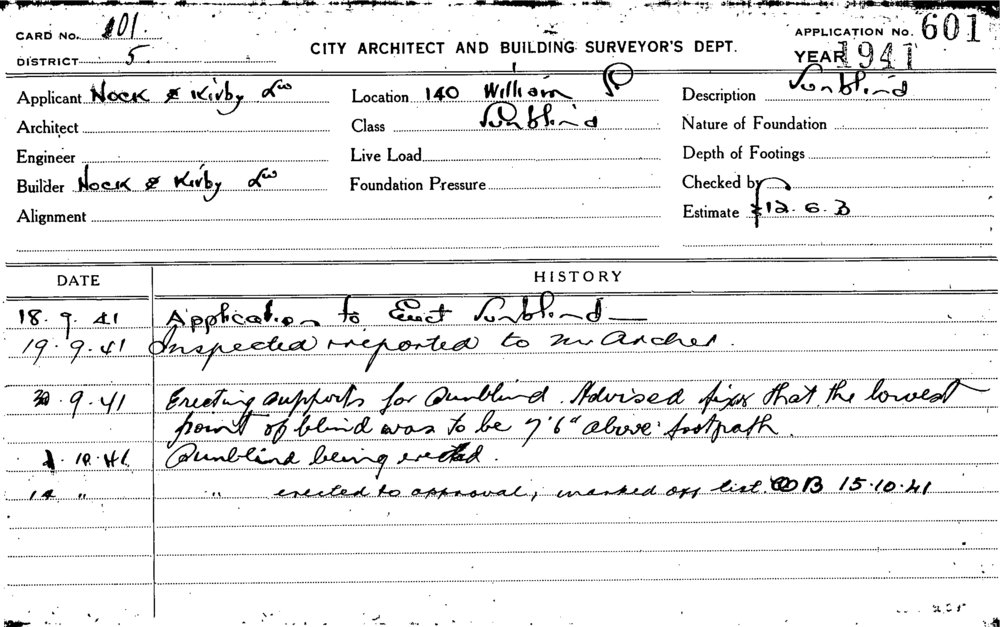 CARD No. 101. APPLICATION No. 601
DISTRICT 5. CITY ARCHITECT AND BUILDING SURVEYOR'S DEPT. YEAR 1941
Applicant Nock & Kirby Ltd Location 140 William St Description Sunblind
Architect Class Sunblind Nature of Foundation
Engineer Live Load Depth of Footings
Builder Nock & Kirby Ltd Foundation Pressure Checked by
Alignment Estimate £12.6.3
DATE HISTORY
18.9.41 Application to Erect Sunblind
19.9.41 Inspected & reported to Mr Archer.
9.41 Erecting supports for Sunblind. Advised fixer that the lowest
point of blind was to be 7'6" above footpath.
1.10.41 Sunblind being erected.
14 " " erected to approval, marked off list. B 15.10.41